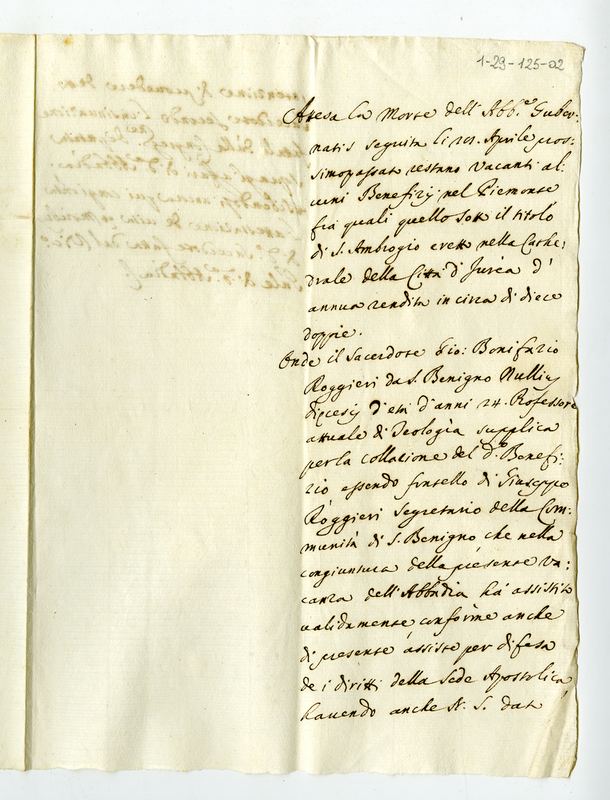 1-29-125-02
Atesa la Morte dell' Abb.e Guber:
natis seguita li 21. Aprile pros:
simopassato restano vacanti al:
cuni Benefizij nel Piemonte
fra quali quello sotto il titolo
di S. Ambrogio eretto nella Cathe;
drale della Città d'Jvrea d'
annua rendita in circa di diece
doppie.
Onde il Sacerdote Gio: Bonifazio
Roggieri da S. Benigno Nullius
Diocesis d'età d'anni 24. Professore
attuale di Teologia supplica
per la Collazione del d.o Benefi:
zio essendo fratello di Giuseppe
Roggieri Segretario della Com:
munità di S. Benigno che nella
congiuntura della presente va:
canza dell'Abbadia ha assistito
validamente conforme anche
di presente assiste per difesa
de i diritti della Sede Apostolica
havendo anche N. S. dat